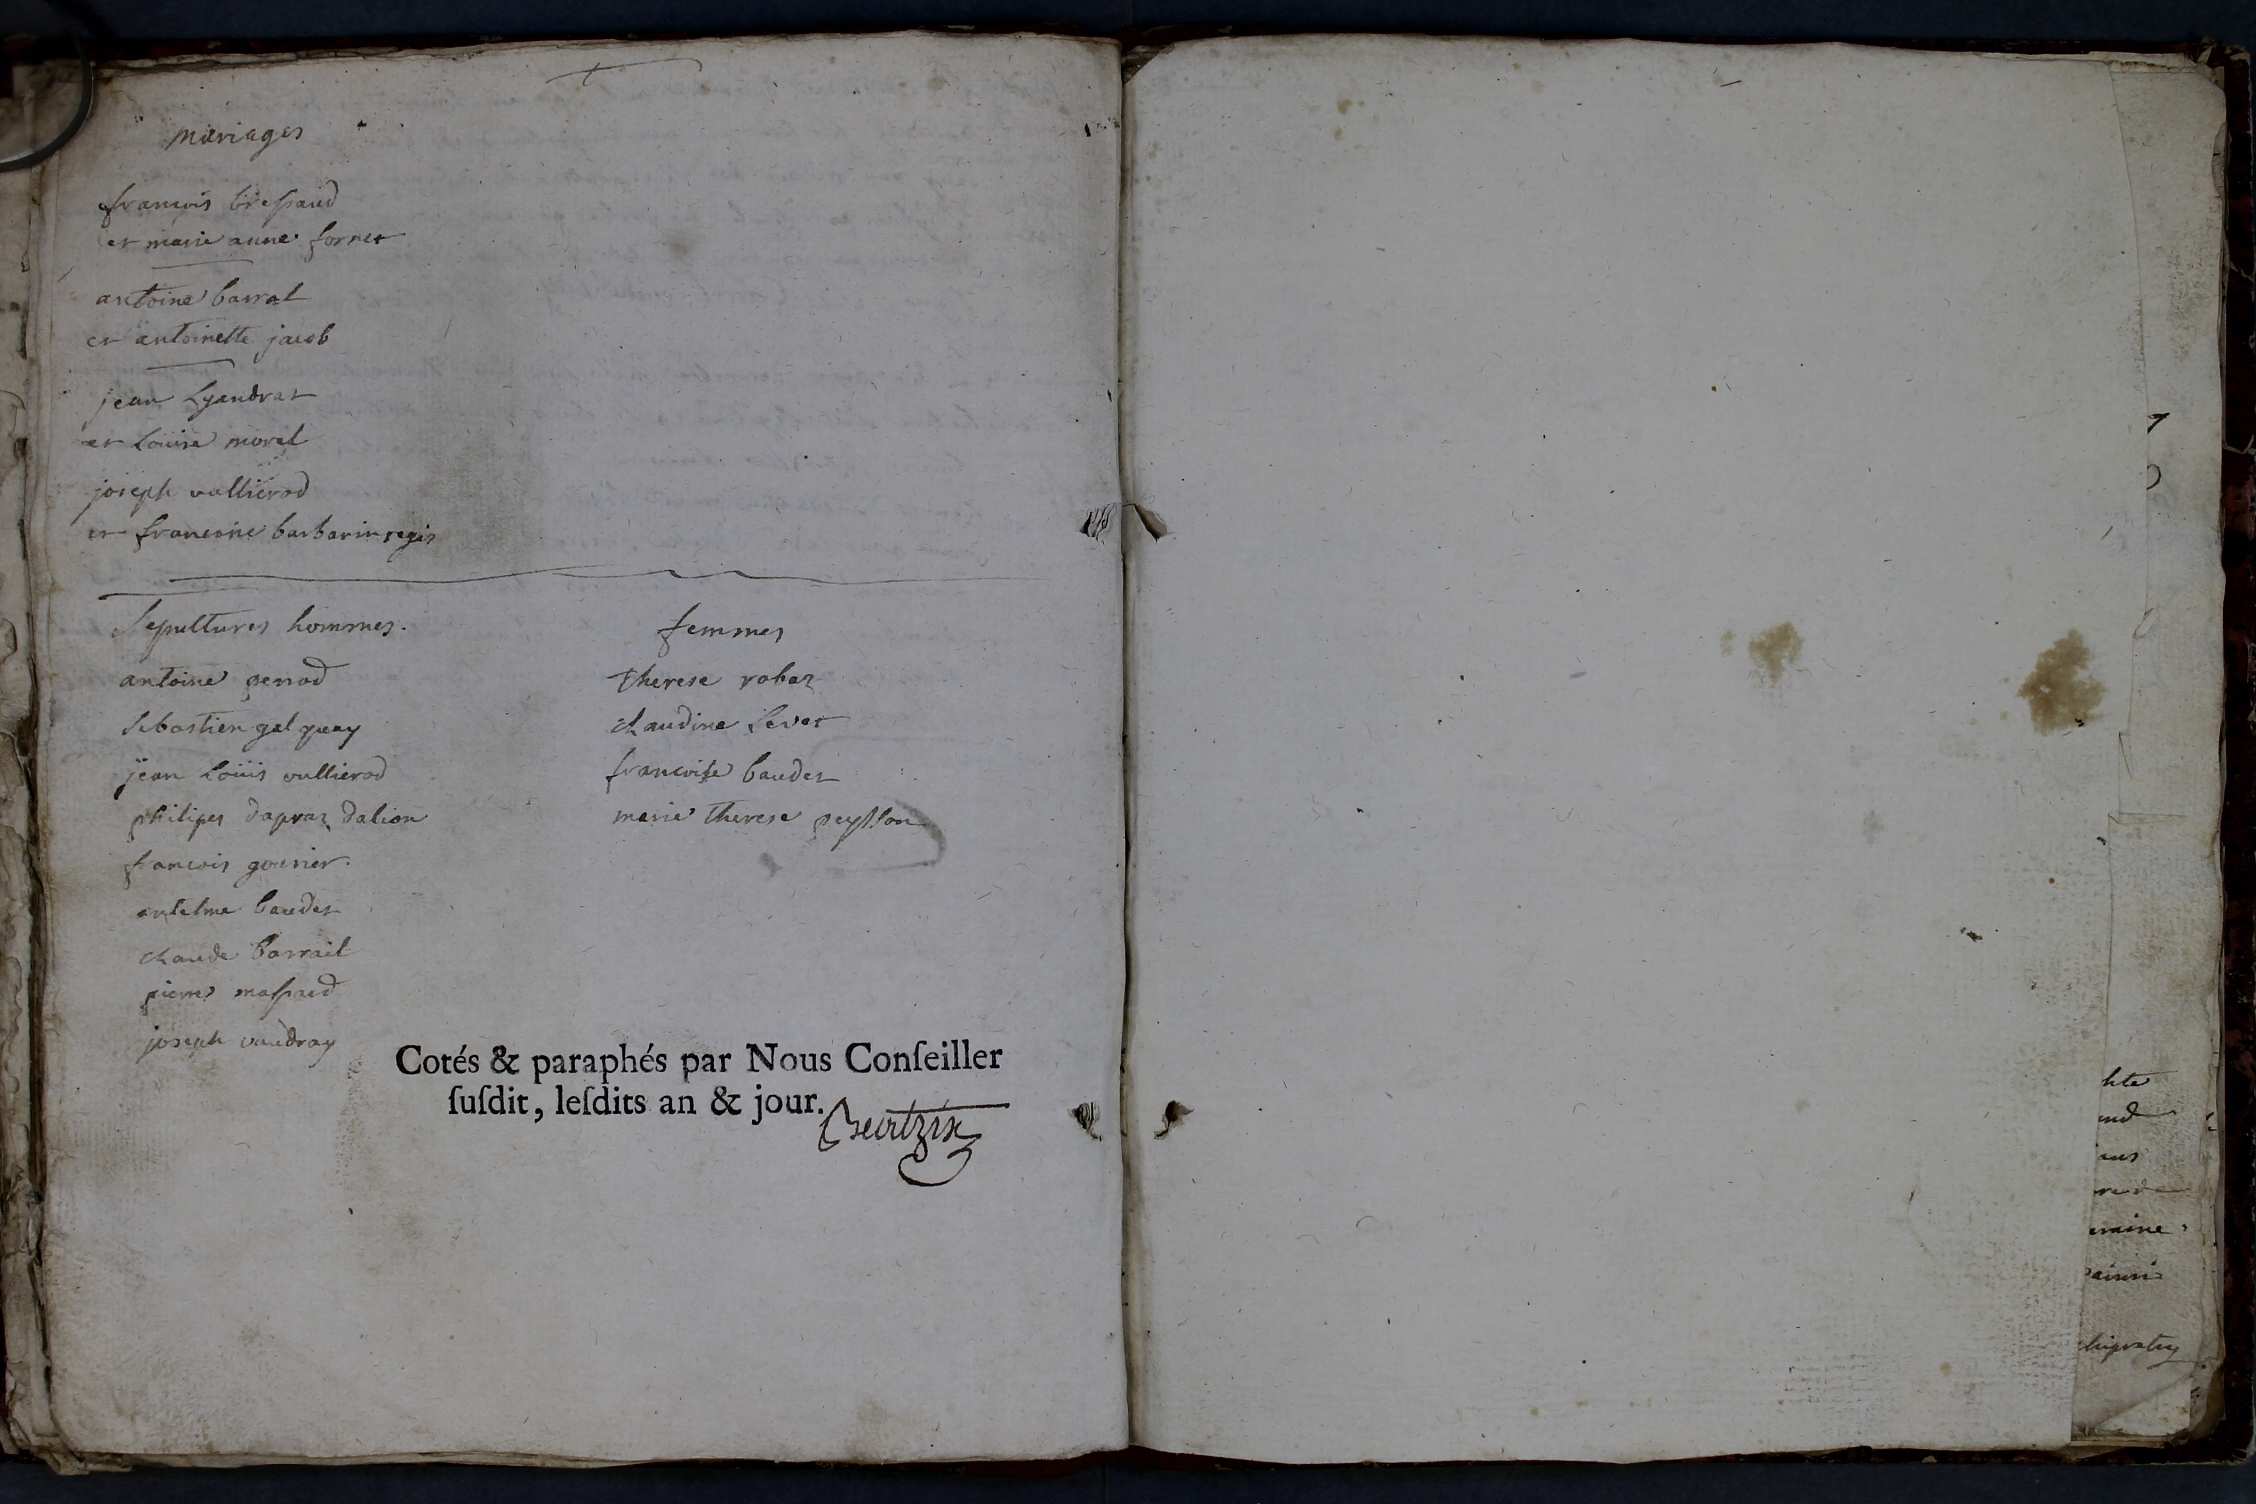 mariages
françois bressaud
et marie anne fornet
antoine barral
et antoinette jacob
jean Lyaudrat
et Loüise morel
joseph vullierod
et francoise barbarin regis
Sepultures hommes.
antoine perrod
Sebastien galquay
jean Loüis vullierod
philipes dapraz dalion
francois gounier.
antelme baudet
claude barrail
pierre massaud
joseph vaudray
femmes
Therese robaz
claudine Sevet
francoise baudet
marie Therese peysson
Cotés & paraphés par Nous Conſeiller
ſuſdit, leſdits an & jour.